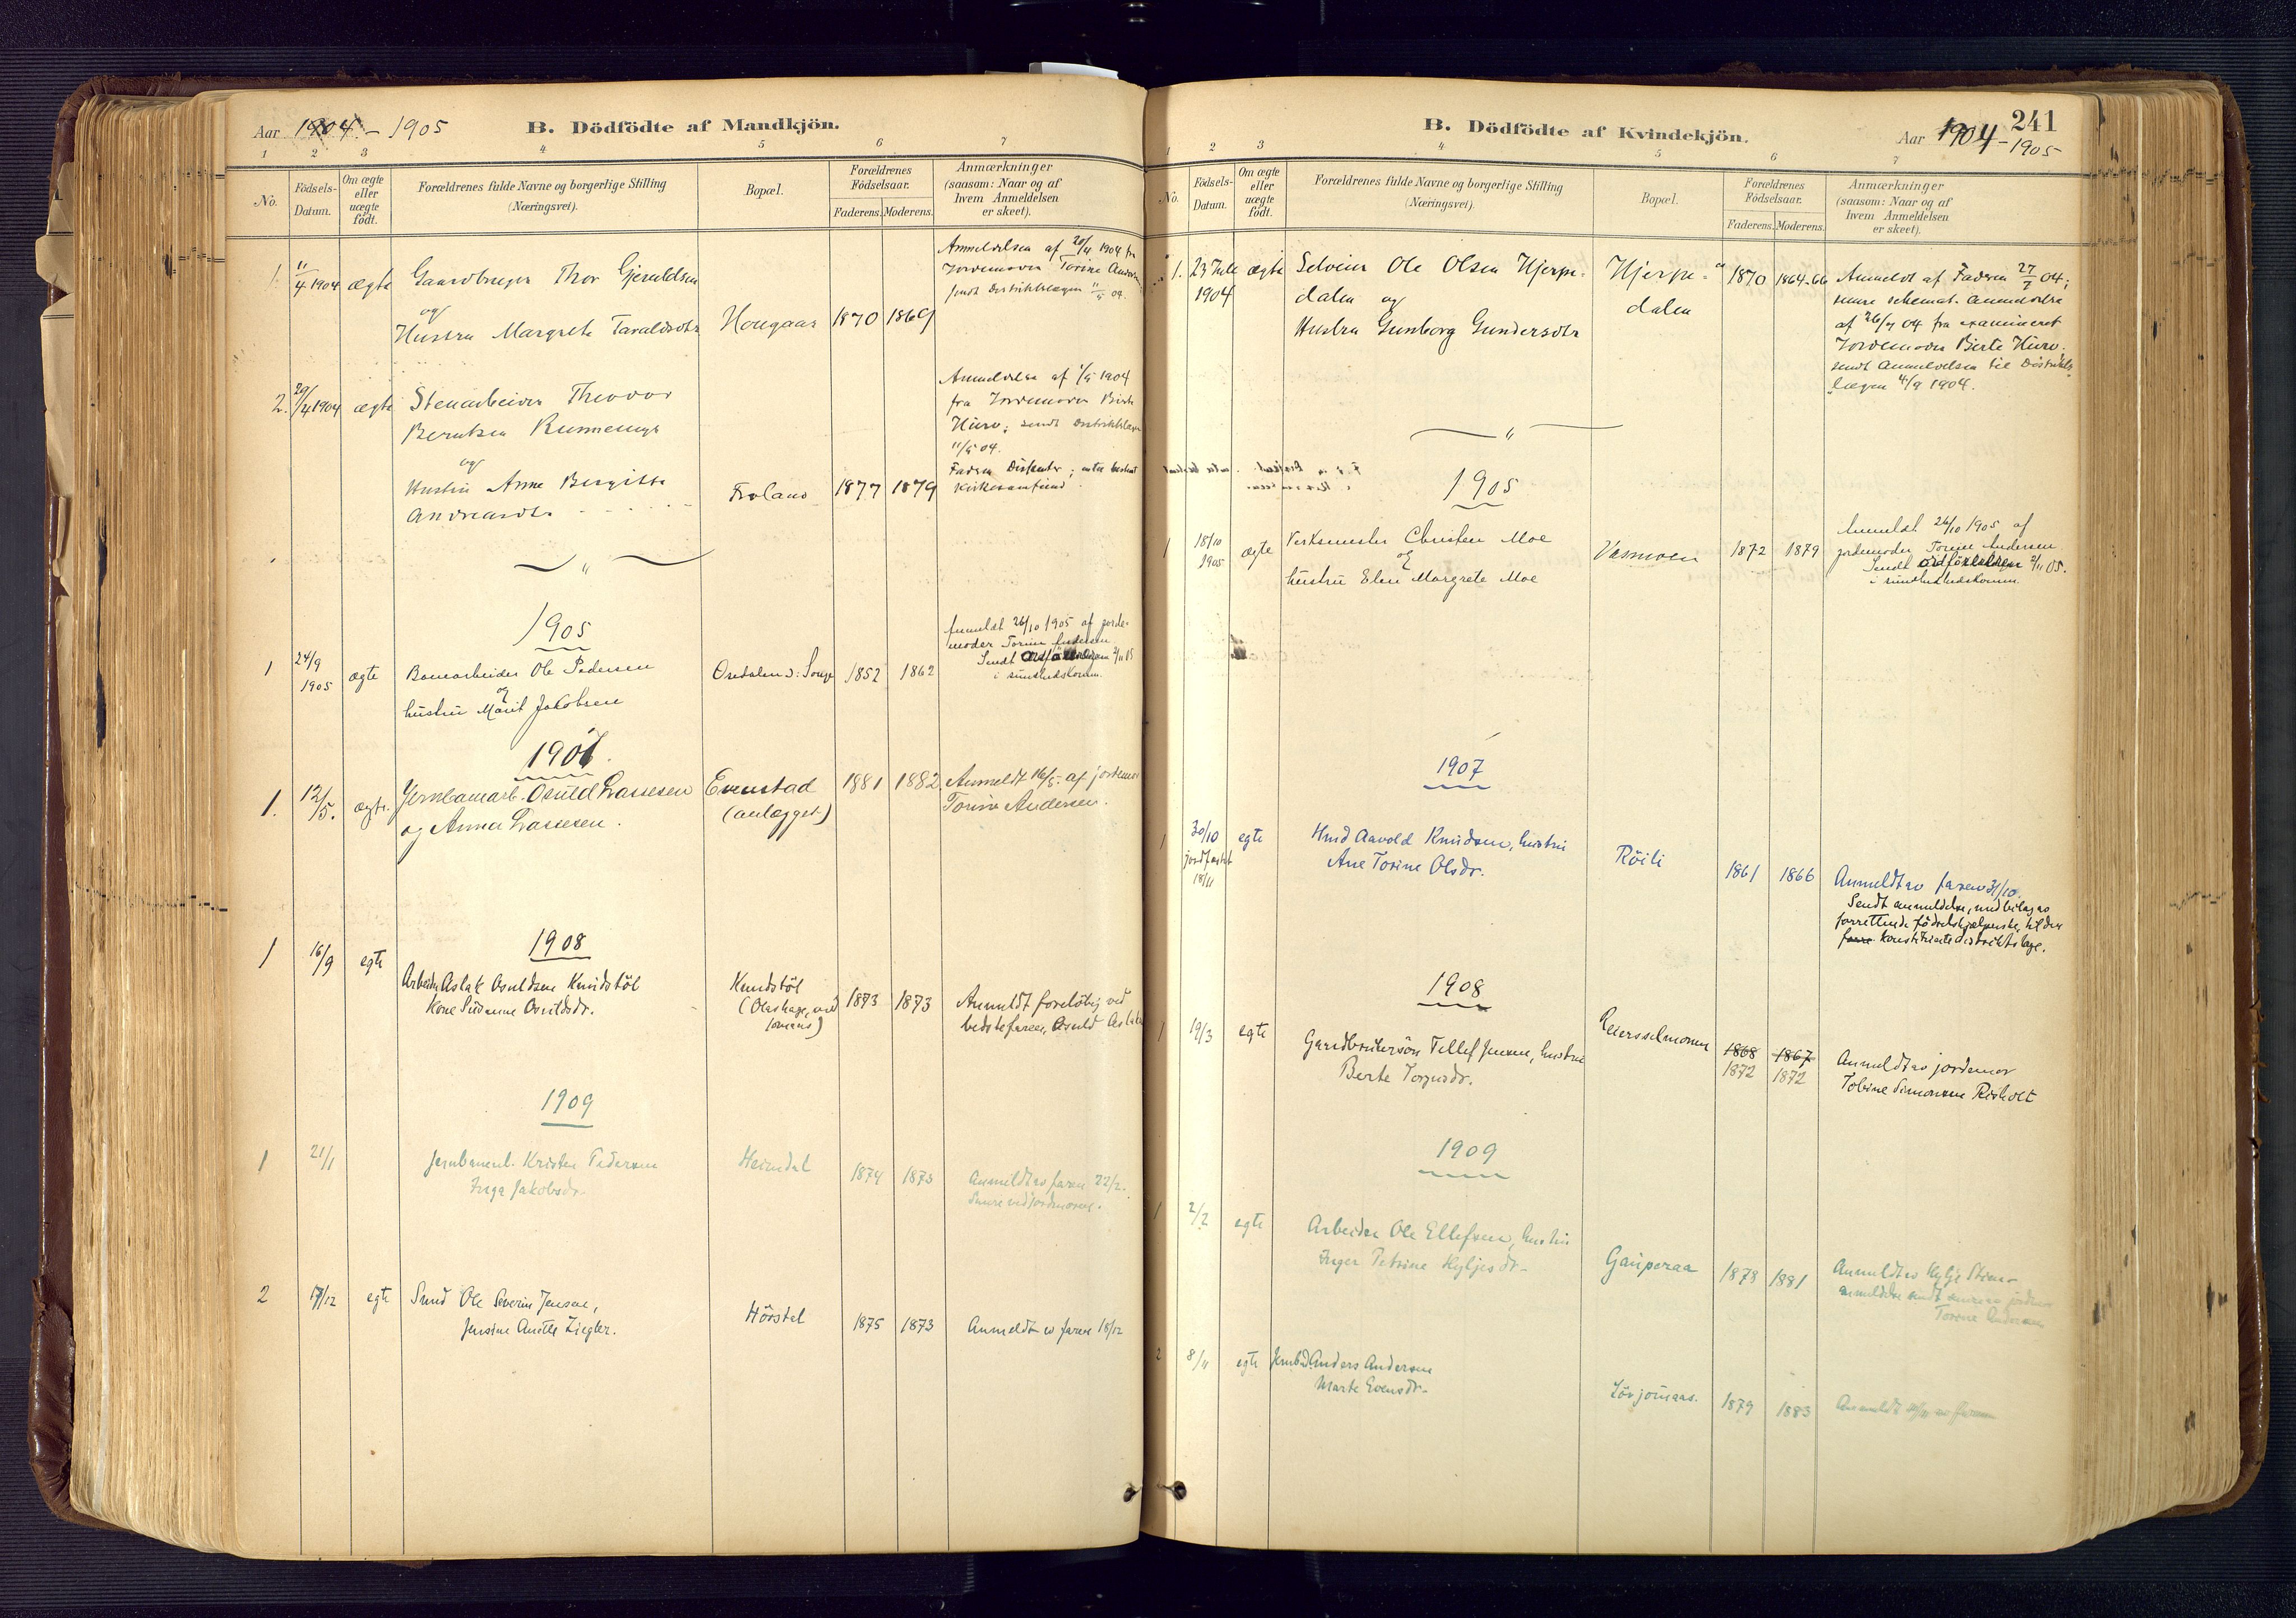 Aar 1904 - 1905
B. Dödfödte af Mandkjön.
1 2 3 4 5 6 7
No.
Födsels-Datum.
Om ægte eller uægte födt.
Forældrenes fulde Navne og borgerlige Stilling
(Næringsvei).
Bopæl.
Forældrenes Födselsaar.
Faderens. Moderens.
Anmærkninger
(saasom: Naar og af
hvem Anmeldelsen
er skeet).
1. 11/4 1904 ægte Gaardbruger Thor Gjeruldsen
og
Hustru Margrete Taraldsdtr Hougaas 1870 1869
Anmeldelsen af 20/4 1904 fra
Jordemoder Torine Andersen
sendt Distriktslægen 11/5 04.
2. 29/4 1904 ægte Stenarbeider Theodor
Berntsen
og
Hustru Anne Bergitte
Andreasdtr Froland 1877 1879
Anmeldelse af 1/5 1904
fra Jordemoder Birte
Hurv; sendt Distriktslægen
11/5 04.
Fader Dissenter; intet bestemt
Kirkesamfund.
"
1905
1 24/9 1905 ægte Banearbeider Ole Pedersen
og
hustru Marit Jakobsen
Osedalen 1852 1862
Anmeldt 26/10 1905 af jorde-
moder Torine Andersen
Sendt Ordföreren 2/11 05
i sundhedskomm.
1907.
1. 12/5. ægte. Jernbanearb. Osuld Lassesen
og Anna Lassesen.
Evenstad
(anlægget)
1881 1882
Anmeldt 16/5. af jordemor
Torine Andersen.
1908
1 16/9 egte
Arbeider Aslak Osuldsen Knudstöl
Kone Susanne Osuldsdr.
Knudstöl
1873 1873
Anmeldt forelöbig ved
bedstefaren, Osuld Aslaks
1909
1 21/1 Jernbanearb. Kristen Pedersen
Inga Jakobsdr.
Heimdal 1874 1873
Anmeldt av faren 22/2.
Senere ved jordmoren.
2 17/12 egte Smed Ole Severin Jensen,
Jensine Amalie Ziegler.
Hörstal 1875 1873 Anmeldt av faren 18/12
B. Dödfödte af Kvindekjön.
Aar 1904 - 1905
241
1 2 3 4 5 6 7
No.
Födsels-Datum.
Om ægte eller uægte födt.
Forældrenes fulde Navne og borgerlige Stilling
(Næringsvei).
Bopæl.
Forældrenes Födselsaar.
Faderens. Moderens.
Anmærkninger
(saasom: Naar og af
hvem Anmeldelsen
er skeet).
1. 23 Juli 1904 ægte Selveier Ole Olsen Hjerpe-
dalen og
Hustru Gunborg Gundersdtr
Hjerpe-
dalen
1870 1864-66
Anmeldt af Faderen 27/7 04;
senere schemat. anmeldelse
af 26/7 04 fra examineret
Jordemoder Birte Hurv.
sendt Anmeldelsen til Distrikts-
lægen 4/9 1904.
"
1905
1 18/10 1905 ægte Verksmester Christen Moe
og
hustru Elen Margrete Moe
Vasmoen 1872 1879
Anmeldt 26/10 1905 af
jordemoder Torine Andersen
Sendt Ordföreren 2/11 05.
i sundhedskomm.
1907
1 30/10
jordfæstet
18/11
egte
Hmd Aavold Knudsen, hustru
Ane Torine Olsdr.
Röili
1861 1866
Anmeldt av faren 31/10
Sendt anmeldelse, med bilag av
forrettende födselshjælperske, til den
konstituerte distriktslæge.
1908
1 19/3 egte
Gaardbrukersön Tellef Jensen, hustru
Berte Torjusdr.
Reierselmoen
1868 1867
1872 1872
Anmeldt av jordemor
Tobine Simonsen Risholt
1909
1 2/2 egte Arbeider Ole Ellefsen, hustru
Inger Petrine Kyljesdr.
Gauperaa 1878 1881
Anmeldt av Kylje
anmeldelse sendt senere av jordmor
Torine Andersen
2 8/11 egte Jernb.arb. Anders Andersen
Marte Evensdr.
Lövjomaas. 1879 1883
Anmeldt av faren